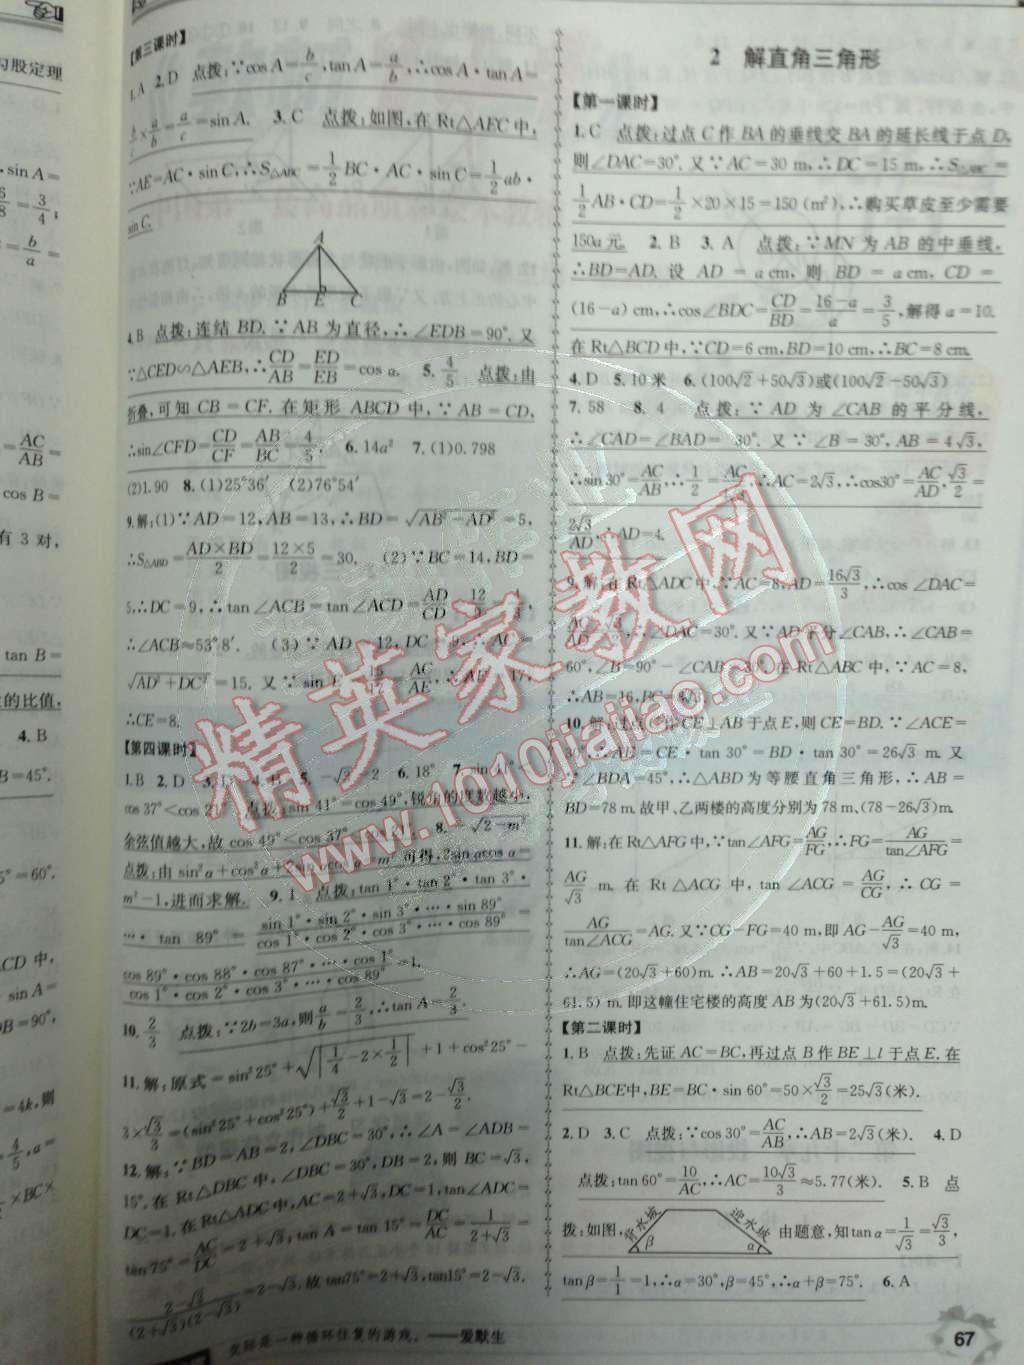 【第三课时】
1.A 2.D 点拨:∵cosA=b/c,tanA=a/b,∴cosA·tanA=
b/c×a/b=a/c=sinA. 3.C 点拨:如图,在Rt△AEC中,
∵AE=AC·sinC,∴S△ABC=1/2BC·AC·sinC=1/2ab·
sinC.
A
B E C
4.B 点拨:连结BD.∵AB为直径,∴∠EDB=90°.又
∵△CED∽△AEB,∴CD/AB=ED/EB=cosα. 5.4/5 点拨:由
折叠,可知CB=CF.在矩形ABCD中,∵AB=CD,
∴sin∠CFD=CD/CF=AB/BC=4/5. 6.14a² 7.(1)0.798
(2)1.90 8.(1)25°36′ (2)76°54′
9.解:(1)∵AD=12,AB=13,∴BD=√(AB²-AD²)=5,
∴S△ABD=AD×BD/2=12×5/2=30. (2)∵BC=14,BD=
5,∴DC=9,∴tan∠ACB=tan∠ACD=AD/CD=12/9=4/3,
∴∠ACB≈53°8′ (3)∵AD=12,DC=9,∴AC=
√(AD²+DC²)=15.又∵sin
∴CE=8.
【第四课时】
1.B 2.D 4.B 6.18°
点拨:sin41°=cos49°,锐角的度数越小,
余弦值越大,故cos49°<cos37° 8. √(2-m²)
点拨:由sin²α+cos²α+2sinαcosα=m²可得,2sinαcosα=
m²-1,进而求解. 9.1 点拨:tan1°·tan2°·tan3°·
…·tan89°=sin1°·sin2°·sin3°·…·sin89°/cos1°·cos2°·cos3°·…·cos89°=
cos89°·cos88°·cos87°·…·cos1°/cos1°·cos2°·cos3°·…·cos89°=1.
10.2/3 点拨:∵2b=3a,则a/b=2/3,∴tanA=2/3.
11.解:原式=sin²25°+√|1/4-2×1/2|+1+cos²25°-
=(sin²25°+cos²25°)+√3/2+1-√3=2-√3/2.
12.解:∵BD=AB=2,∠DBC=30°,∴∠A=∠ADB=
15°.在Rt△DBC中,∠DBC=30°,DB=2,则BC=√3,
DC=1.在Rt△ADC中,AC=2+√3,DC=1,tan∠ADC=
tan75°=AC/DC=2+√3,tanA=tan15°=DC/AC=1/(2+√3)=
(2-√3)/((2+√3)(2-√3))=2-√3.故tan75°=2+√3,tan15°=2-√3.
交际是一种循环往复的游戏。——爱默生
2 解直角三角形
【第一课时】
1.C 点拨:过点C作BA的垂线交BA的延长线于点D,
则∠DAC=30°.又∵AC=30 m,∴DC=15 m,∴S△ABC=
1/2AB·CD=1/2×20×15=150(m²),∴购买草皮至少需要
150a元. 2.B 3.A 点拨:∵MN为AB的中垂线,
∴BD=AD.设AD=a cm,则BD=a cm,CD=
(16-a) cm,∴cos∠BDC=CD/BD=(16-a)/a=3/5,解得a=10.
在Rt△BCD中,∵CD=6 cm,BD=10 cm,∴BC=8 cm.
4.D 5.10米 6.(100√2+50√3)或(100√2-50√3)
7.58 8.4 点拨:∵AD为∠CAB的平分线,
∴∠CAD=∠BAD=30°.又∵∠B=30°,AB=4√3,
∴sin30°=AC/AB,∴1/2=AC/4√3,∴AC=2√3,∴cos30°=AC/AD,√3/2=
2√3/AD,∴AD=4.
9.解:在Rt△ADC中,∵AC=8,AD=16√3/3,∴cos∠DAC=
AC/AD=√3/2,∴∠DAC=30°.又∵AD平分∠CAB,∴∠CAB=
60°,∠B=90°-∠CAB=30°.在Rt△ABC中,∵AC=8,
∴AB=16,BC=8√3.
10.解:过点C作CE⊥AB于点E,则CE=BD.∵∠ACE=
30°,∴AE=CE·tan30°=BD·tan30°=26√3 m.又
∵∠BDA=45°,∴△ABD为等腰直角三角形,∴AB=
BD=78 m.故甲、乙两楼的高度分别为78 m,(78-26√3)m.
11.解:在Rt△AFG中,∵tan∠AFG=AG/FG,∴FG=AG/tan∠AFG=
AG/√3 m.在Rt△ACG中,tan∠ACG=AG/CG,∴CG=
AG/tan∠ACG=AG.又∵CG-FG=40 m,即AG-AG/√3=40 m,
∴AG=(20√3+60)m.∴AB=20√3+60+1.5=(20√3+
61.5)m.即这幢住宅楼的高度AB为(20√3+61.5)m.
【第二课时】
1.B 点拨:先证AC=BC,再过点B作BE⊥l于点E.在
Rt△BCE中,BE=BC·sin60°=50×√3/2=25√3(米).
2.D 3.C 点拨:∵cos30°=AC/AB,∴AB=2√3(米). 4.D
点拨:tan60°=10/AC,∴AC=10√3/3≈5.77(米). 5.B 点
拨:如图, 背水坡 迎水坡 β α 由题意,知tanα=1/√3=√3/3,
tanβ=1/1=1,∴α=30°,β=45°,∴α+β=75°. 6.A
67
精英家教网
www.1010jiajiao.com
勾股定理
sinA=
6/8=3/4,
b/a
=AC/AB=
cosB=
有3对,
tanB=
的比值,
4.B
B=45°.
=60°.
CD中,
sinA=
B=90°,
=4k,则
4/5,α=
×BC×